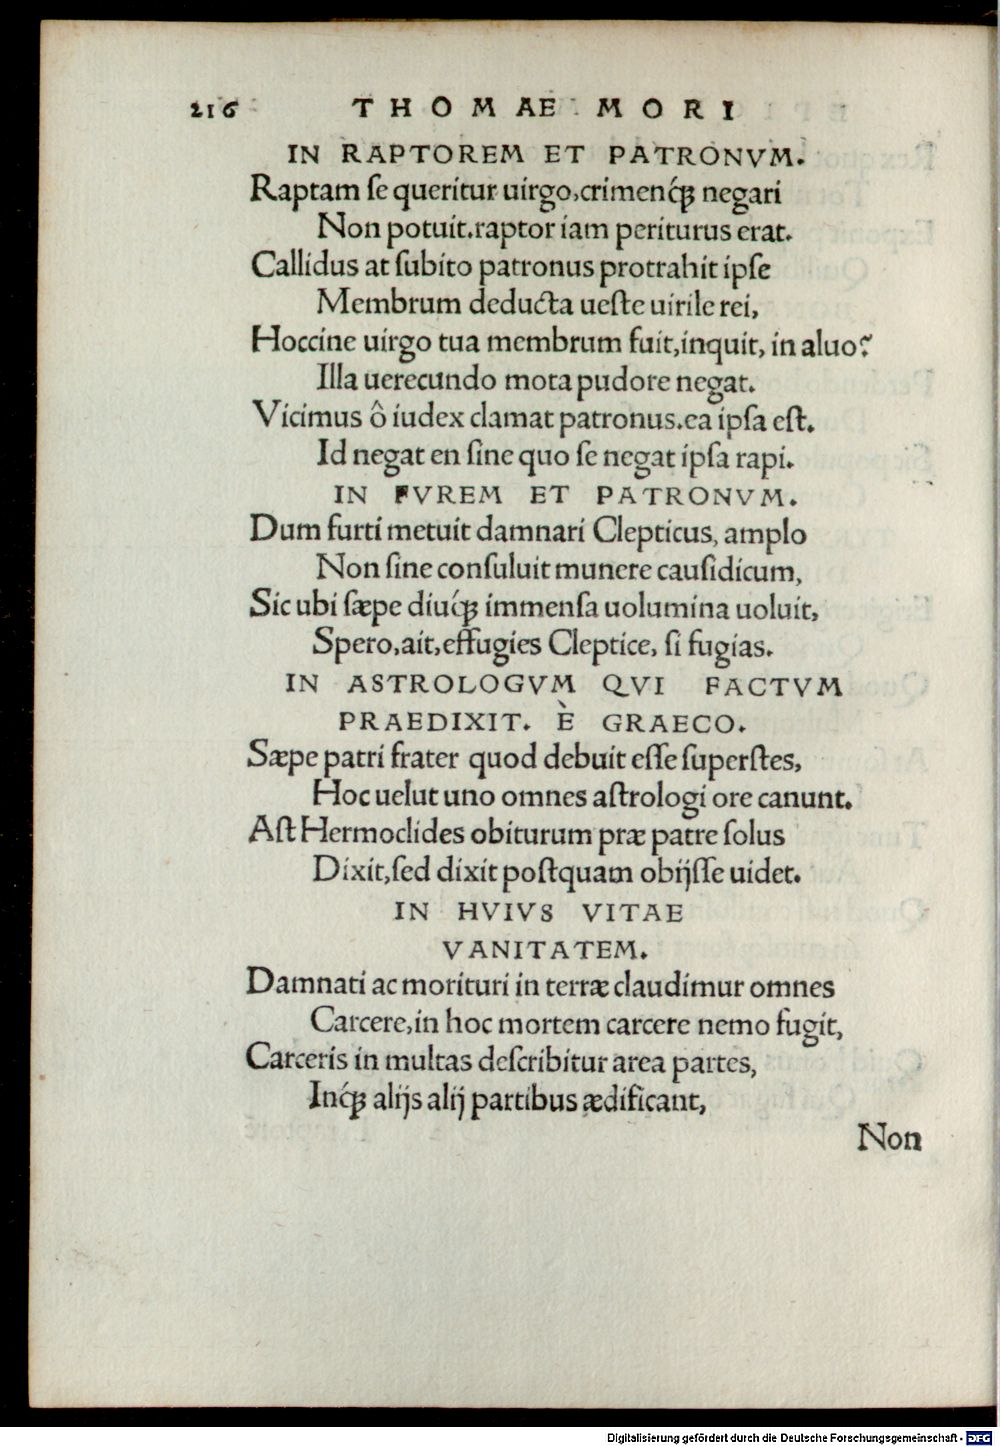 216 THOMAE MORI
IN RAPTOREM ET PATRONVM.
Raptam ſe queritur uirgo, crimenq́ꝫ negari
Non potuit. raptor iam periturus erat.
Callidus at ſubito patronus protrahit ipſe
Membrum deducta ueſte uirile rei,
Hoccine uirgo tua membrum fuit, inquit, in aluo?
Illa uerecundo mota pudore negat.
Vicimus ô iudex clamat patronus. ea ipſa eſt.
Id negat en ſine quo ſe negat ipſa rapi.
IN FVREM ET PATRONVM.
Dum furti metuit damnari Clepticus, amplo
Non ſine conſuluit munere cauſidicum,
Sic ubi ſæpe diuq́ꝫ immenſa uolumina uoluit,
Spero, ait, effugies Cleptice, ſi fugias.
IN ASTROLOGVM QVI FACTVM
PRAEDIXIT. È GRAECO.
Sæpe patri frater quod debuit eſſe ſuperſtes,
Hoc uelut uno omnes aſtrologi ore canunt.
Aſt Hermoclides obiturum præ patre ſolus
Dixit, ſed dixit poſtquam obijſſe uidet.
IN HVIVS VITAE
VANITATEM.
Damnati ac morituri in terræ claudimur omnes
Carcere, in hoc mortem carcere nemo fugit,
Carceris in multas deſcribitur area partes,
Inq́ꝫ alijs alij partibus ædificant,
Non
Digitalisierung gefördert durch die Deutsche Forschungsgemeinschaft - DFG